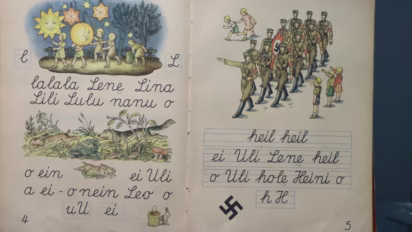 l L
lalala Lene Lina
Lili Lulu nanu o
o ein ei Uli
a ei - o nein Leo o
uU ei
4
heil heil
ei Uli Lene heil
o Uli hole Heini o
h H
5